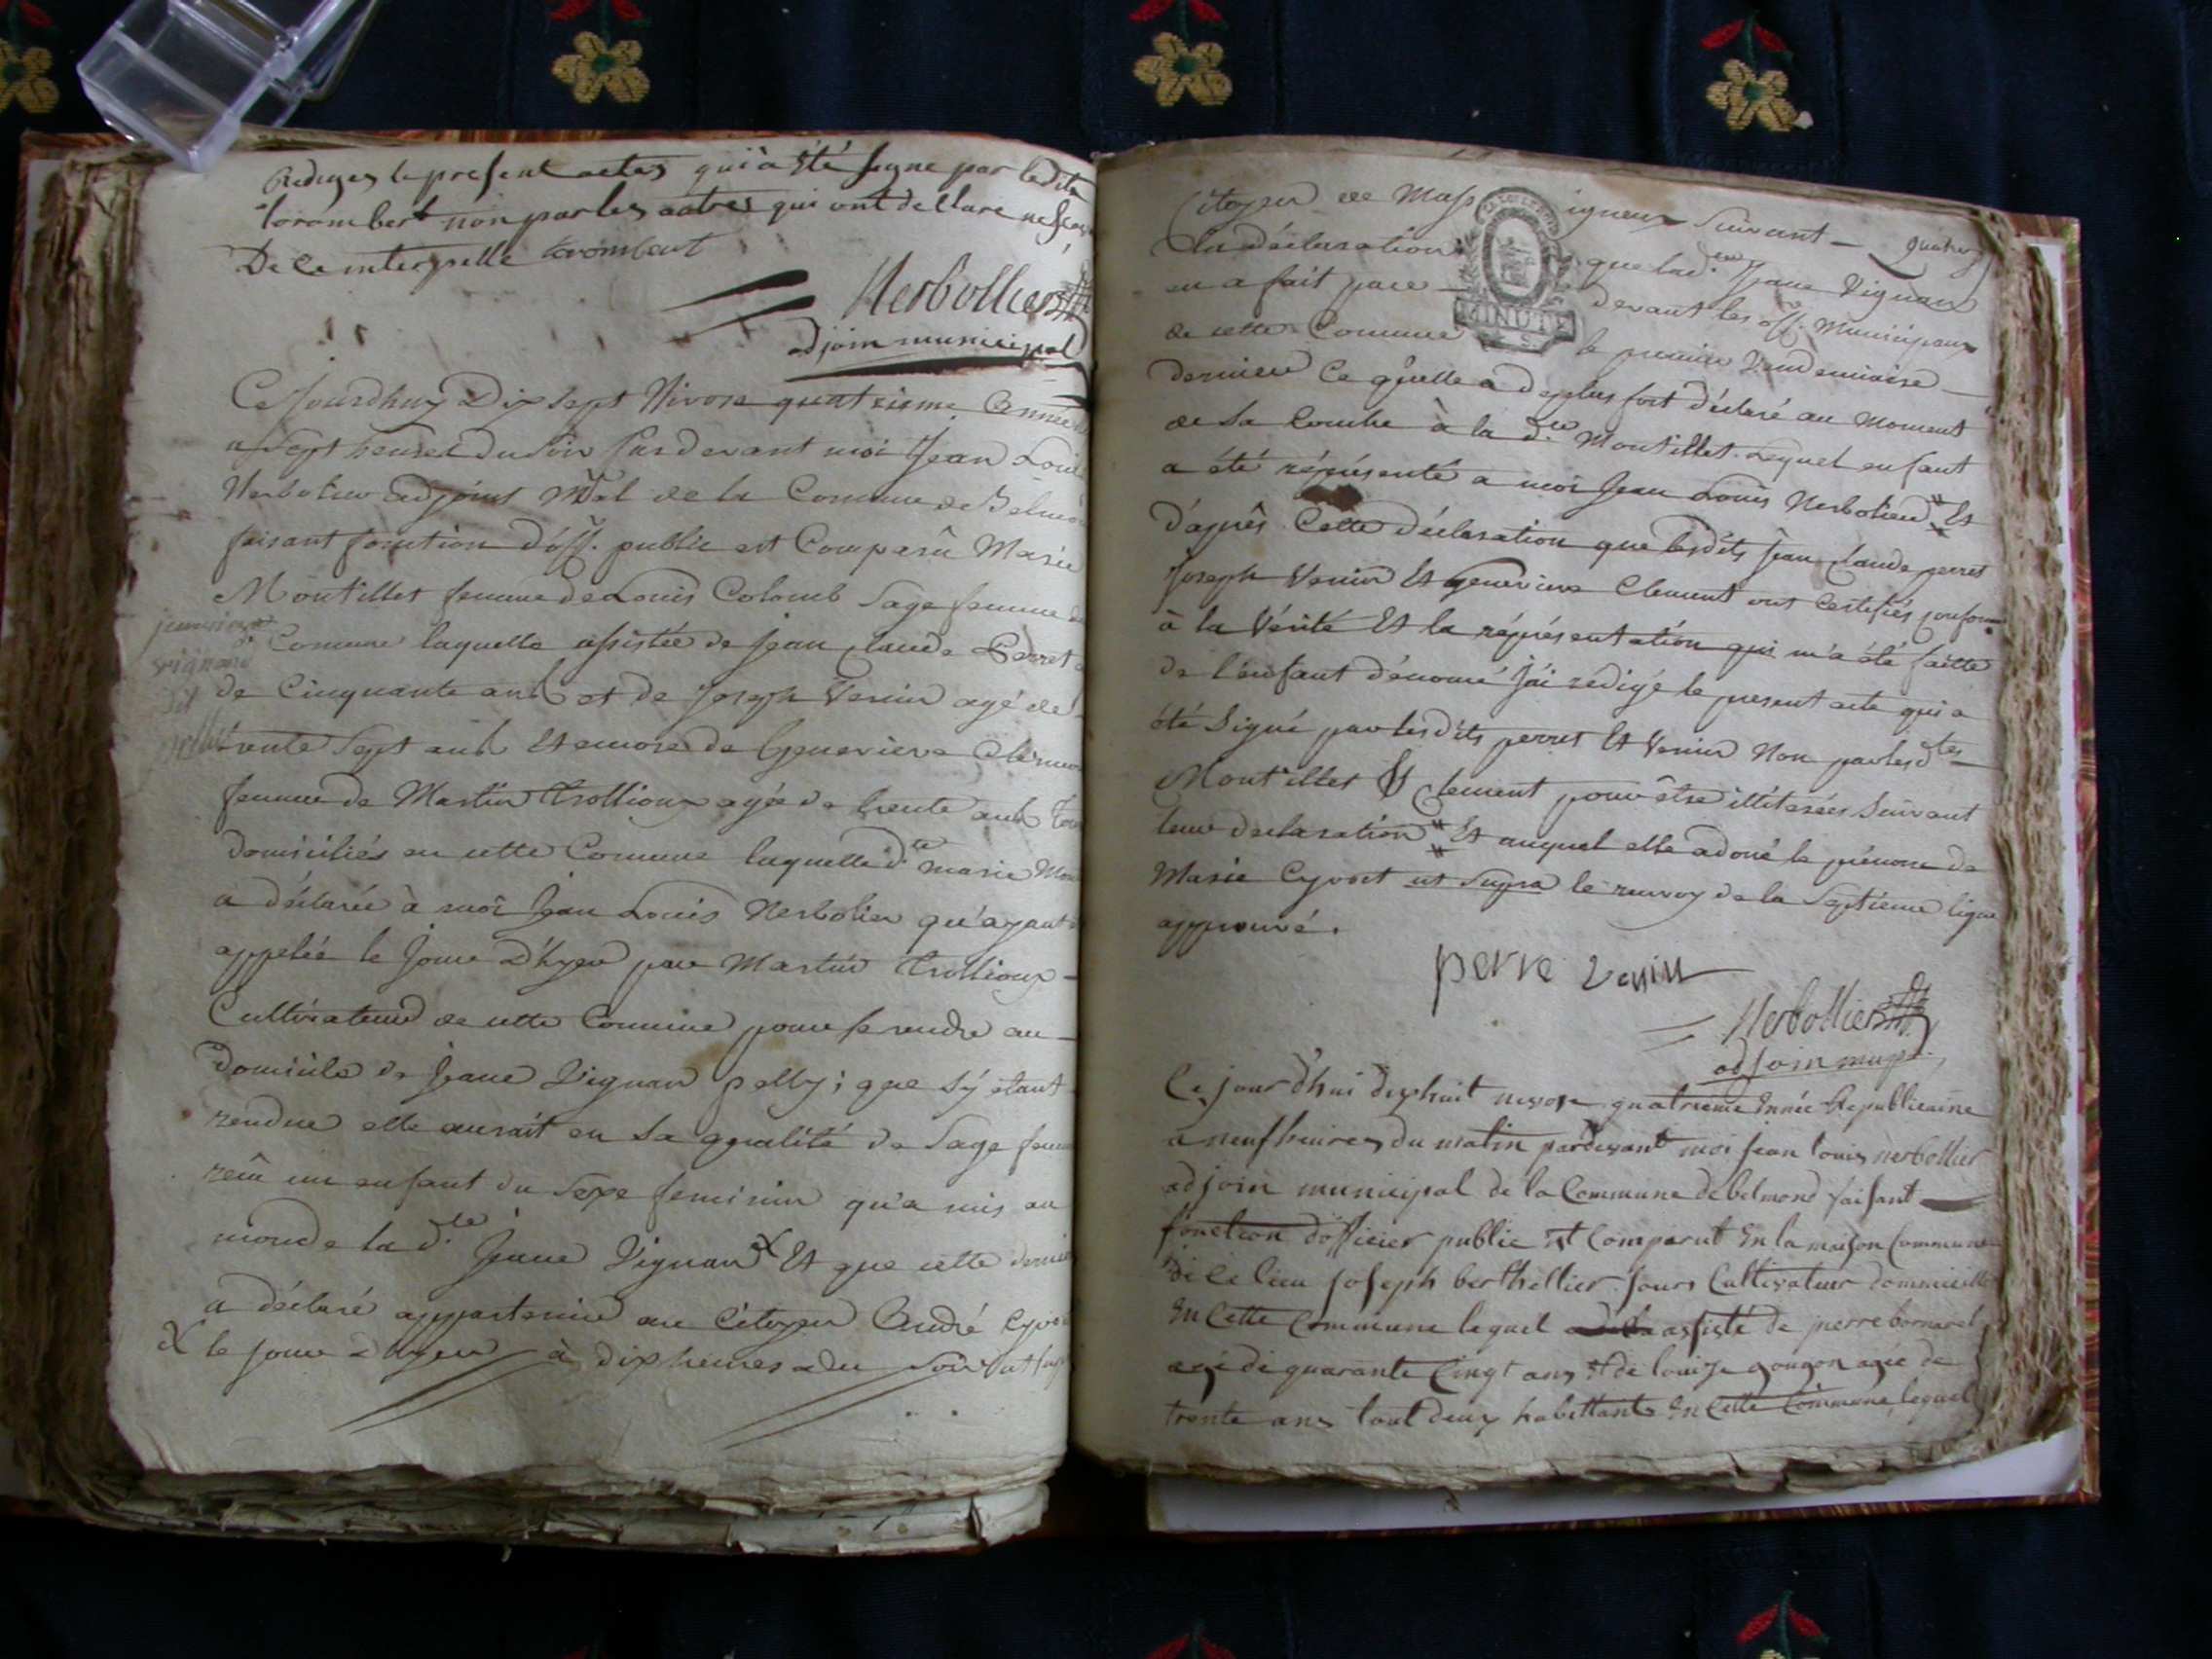 Rediges le present actes qui à été signe par ledit
torombert non par les autres qui ont dellare ne
De ce interpelle torombert
Nerbollier
adjoin municipal
Ce Jourdhuy Dix Sept Nivose quatrieme Année
a Sept heures du soir Pardevant moi Jean Louis
Nerbolier adjoint M.al de la Comune de Belmo
faisant fonction d'off. public est Comparû Marie
Montillet femme de Louis Colomb Sage femme de
Comune laquelle assistée de Jean Claude Perret
de Cinquante ans et de Joseph Venin agé de
trente Sept ans Et encore de Genevieve Clemen
femme de Martin Trollioux agée de trente ans
domiciliés en cette Comune laquelle d.te marie Mon
a déclarée à moi Jean Louis Nerbolier qu'ayant
appelée le Jour d'hyer par Martin Trollioux
Cultivateur de cette Comune pour se rendre au
domicile de Jeane Vignan pelly; que s'y etant
rendue elle aurait en Sa qualité de Sage fem
reçu un enfant du Sexe feminin qu'a mis au
monde la d.te Jeane Vignan X Et que cette derni
a déclaré appartenir au Citoyen André Cyvoct
X le jour d'hyer à dix heures du Soir
jeannine
vignand
dit
pelly
Citoyen de Mass igneux Suivant quatorz
La déclaration que lad.te Jeane Vignan
en a fait par devant les off. Municipaux
de cette Comune le premier Vendemiaire
dernier Ce qu'elle a de plus fort déclaré au Moment
de Sa Couche à la d.te Montillet. Lequel enfant
a été répresenté a moi Jean Louis Nerbolier # Et
D'après Cette déclaration que lesdits Jean Claude perret
Joseph Venin Et genevieve Clement ont Certifiés conforme
à la Vérité Et la répresentation qui m'a été faitte
de l'enfant dénomé J'ai rédigé le present acte qui a
été Signé par lesdits perret Et Venin Non par lesd.tes
Montillet Et Clement pour être illiterées Suivant
leur declaration # Et auquel elle a doné le prénom de
Marie Cyvoct ut Supra le renvoy de la Septieme ligne
approuvé.
perre venin
Nerbollier
adjoin mup.
Ce jour d'hui dixhuit nivose quatrieme Année Republicaine
a neuf heures du matin pardevant moi jean louis nerbollier
adjoin municipal de la Commune de belmond faisant
fonction d'officier public Est Comparut En la maison Commune
de ce lieu joseph berthellier fours Cultivateur dommicillié
En Cette Commune lequel assisté de pierre bornarel
agé de quarante Cinqt ans Et de louise gougon agée de
trente ans tout deux habittants En Cette Commune lequel